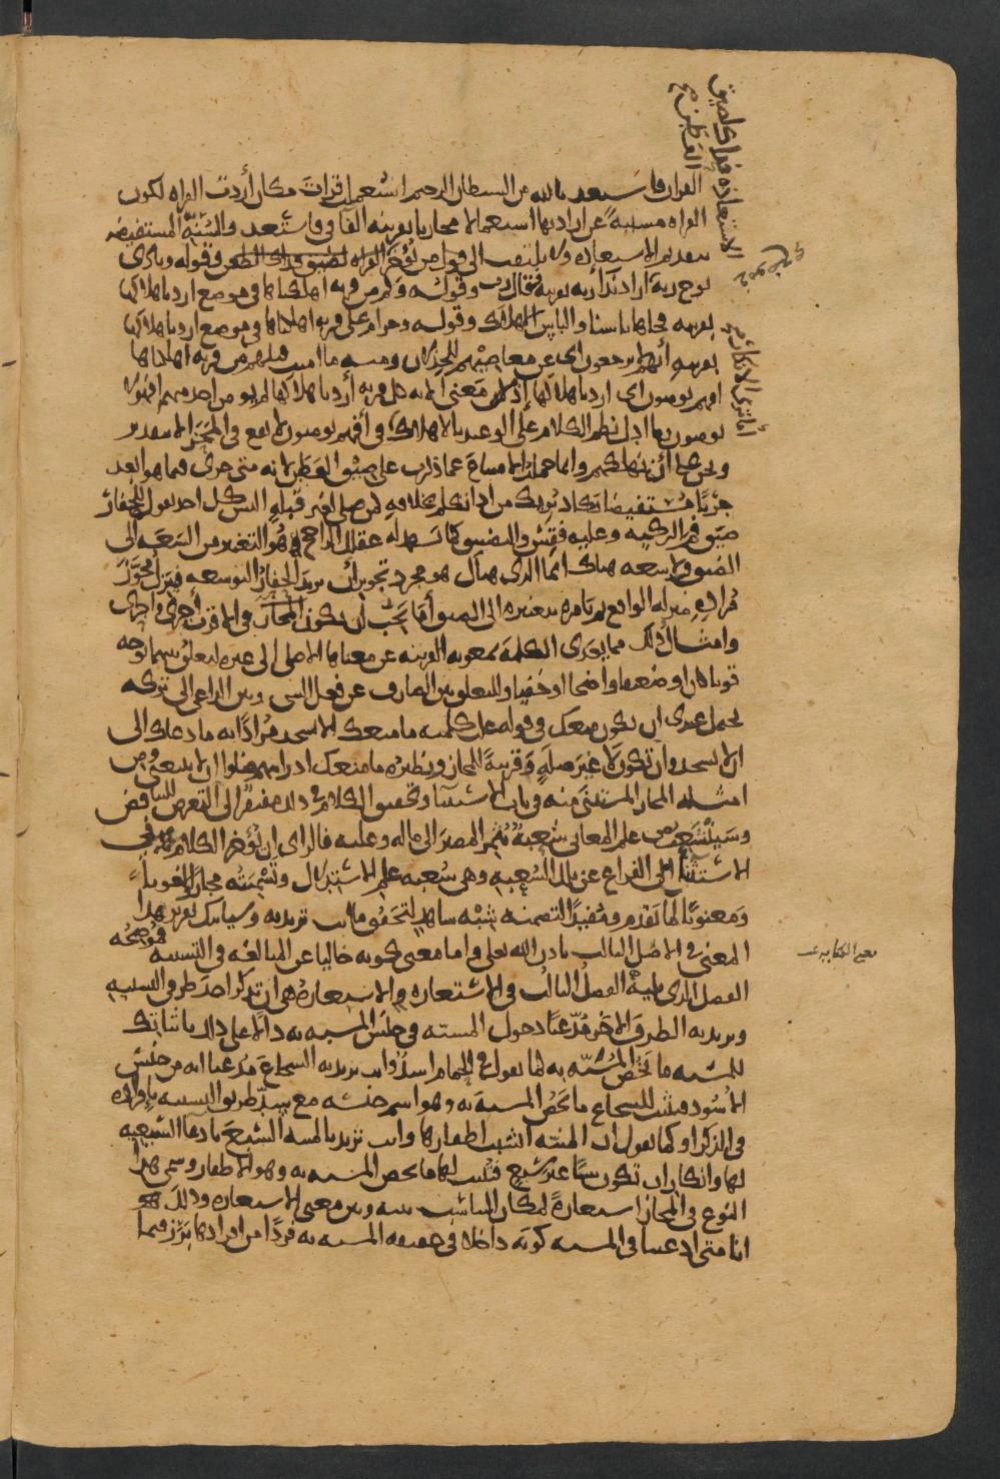 القران فاستعد بالله من الشيطان الرجيم استعمل قرات مكان أردت القراه لكون
القراه مسببةً عن ارادتها استعمالا مجازيا بقرينه الفا في فاستعذ والسُنَّة المستفيضه
بتقديم الاستعاذه ولا يلتفت الى قول من يُؤخّر القراه لضيق وراك الطعن وقوله ونادى
نوح ربه اى اراد ندآ ربه بقرينه فقال رب وقوله وكم من قريه اهلكناها في موضع اردنا هلاكها
بقرينه فجاها باسنا والباس الهلاك وقوله وحرام على قريه اهلكناها في موضع اردنا هلاكها
بقرينه أنهم لا يرجعون اى عن معاصيهم للخذلان ومنه ما امنت قبلهم من قريه اهلكناها
افهم يومنون اى اردنا هلاكها إذ معنى الايه كل قريه أردنا هلاكها لم يومن احد منهم افهولا
يومنون وما ادل نظم الكلام على الوعيد بالاهلاك في أفهم يومنون لا يقع في المَحَزّ الا بتقدير
ونحن على أن نهلكهم وانما حمل الامساغ عما ذكرت على ضيق العَطَن لانه متى جرى فيما هو ابعد
جريًا مُستفيضا يكاد يُريك من اذا تكلم بخلافه كمن صلى لغير قِبله اليس كل احد يقول للحفار
ضيّق فم الركيه وعليه فقِس والتضييق كما يشهد له عقلك الراجح هُو التغيير من السَعه الى
الضيق ولا سعه هناك انما الذى هناك هو مجرد تجويز ان يريد الحفار التوسعه فينزل مُجَوَّز
مُراده منزله الواقع ثم يامره بتغييره الى الضيق أمَا يجب ان يكون المجاز في الاقرب أجرى واجرى
وامثال ذلك مما يعدى الكلمة بمعونه القرينه عن معناها الاصلى الى غيره لتعلق بينهما بوجه
قويا كان او ضعيفا واضحا او خفيا وللتعلق بين الصارف عن فعل الشى وبين الداعى الى تركه
يحتمل عندى ان يكون منعك في قوله علت كلمته ما منعك الا تسجد مُرادًا به ما دعاك الى
ان لا تسجد وان تكون لا غير صلَةٍ وَقرينةً للمجاز ونظيره ما منعك اذ رايتهم ضلوا ان لا تتبعنى ومن
امثله المجاز المستثنى منه في باب الاستثنا وتحقيق الكلام في ذلك مفتقرٌ الى التعرض للتناقض
وسَيَتّشعب من علم المعانى شُعبة تُثمِر المصير الى ماله وعليه فالراى ان نُؤخّر الكلام في
الاستثنا الى الفراغ عن تلك الشعبه وهى شُعبه علم الاستدلال وتُسمّى مجازًا لغويا
وَمعنويًا لما تقدم ومُفيدًا لتضمنه شِبْه شاهدٍ لتحقق ما انت تريد به وسياتيك تقرير هذا
المعنى في الاصل الثالث باذن الله تعالى واما معنى كونه خاليا عن المبالغه في التشبيه فموضحُه
الفصل الذى يليه الفصلُ الثالث في الاستعاره والاستعارةُ هى ان تذكر احد طرفى التشبيه
وتريد به الطرف الاخر مُدّعيًا دخول المشبه في جنس المشبه به دالًا على ذلك باثباتك
للمشبه ما يخُصّ المُشبّه به كما تقول في الحمام اسدٌ وانت تريد به الشجاعَ مُدّعيا انه من جنس
الأسُود فتثبت للشجاع ما يخصُ المشبه به وهو اسم جنسه مع سدّ طريق التشبيه بإفراده
في الذكر او كما تقول ان المنيّه انشبت اظفارها وانت تريد بالمنيه السَبُعَ بادعا السَبُعيه
لها وانكار ان تكون شيًا غير سَبُعٍ فتثبت لها ما يخص المشبه به وهو الاظفار وسمى هذا
النوع في المجاز استعارةً لمكان التناسب بينه وبين معنى الاستعاره وذلك هو
انا متى ادعينا في المشبه كونَه داخلا في حقيقه المشبه به فردًا من افرادها بَرَز فيما